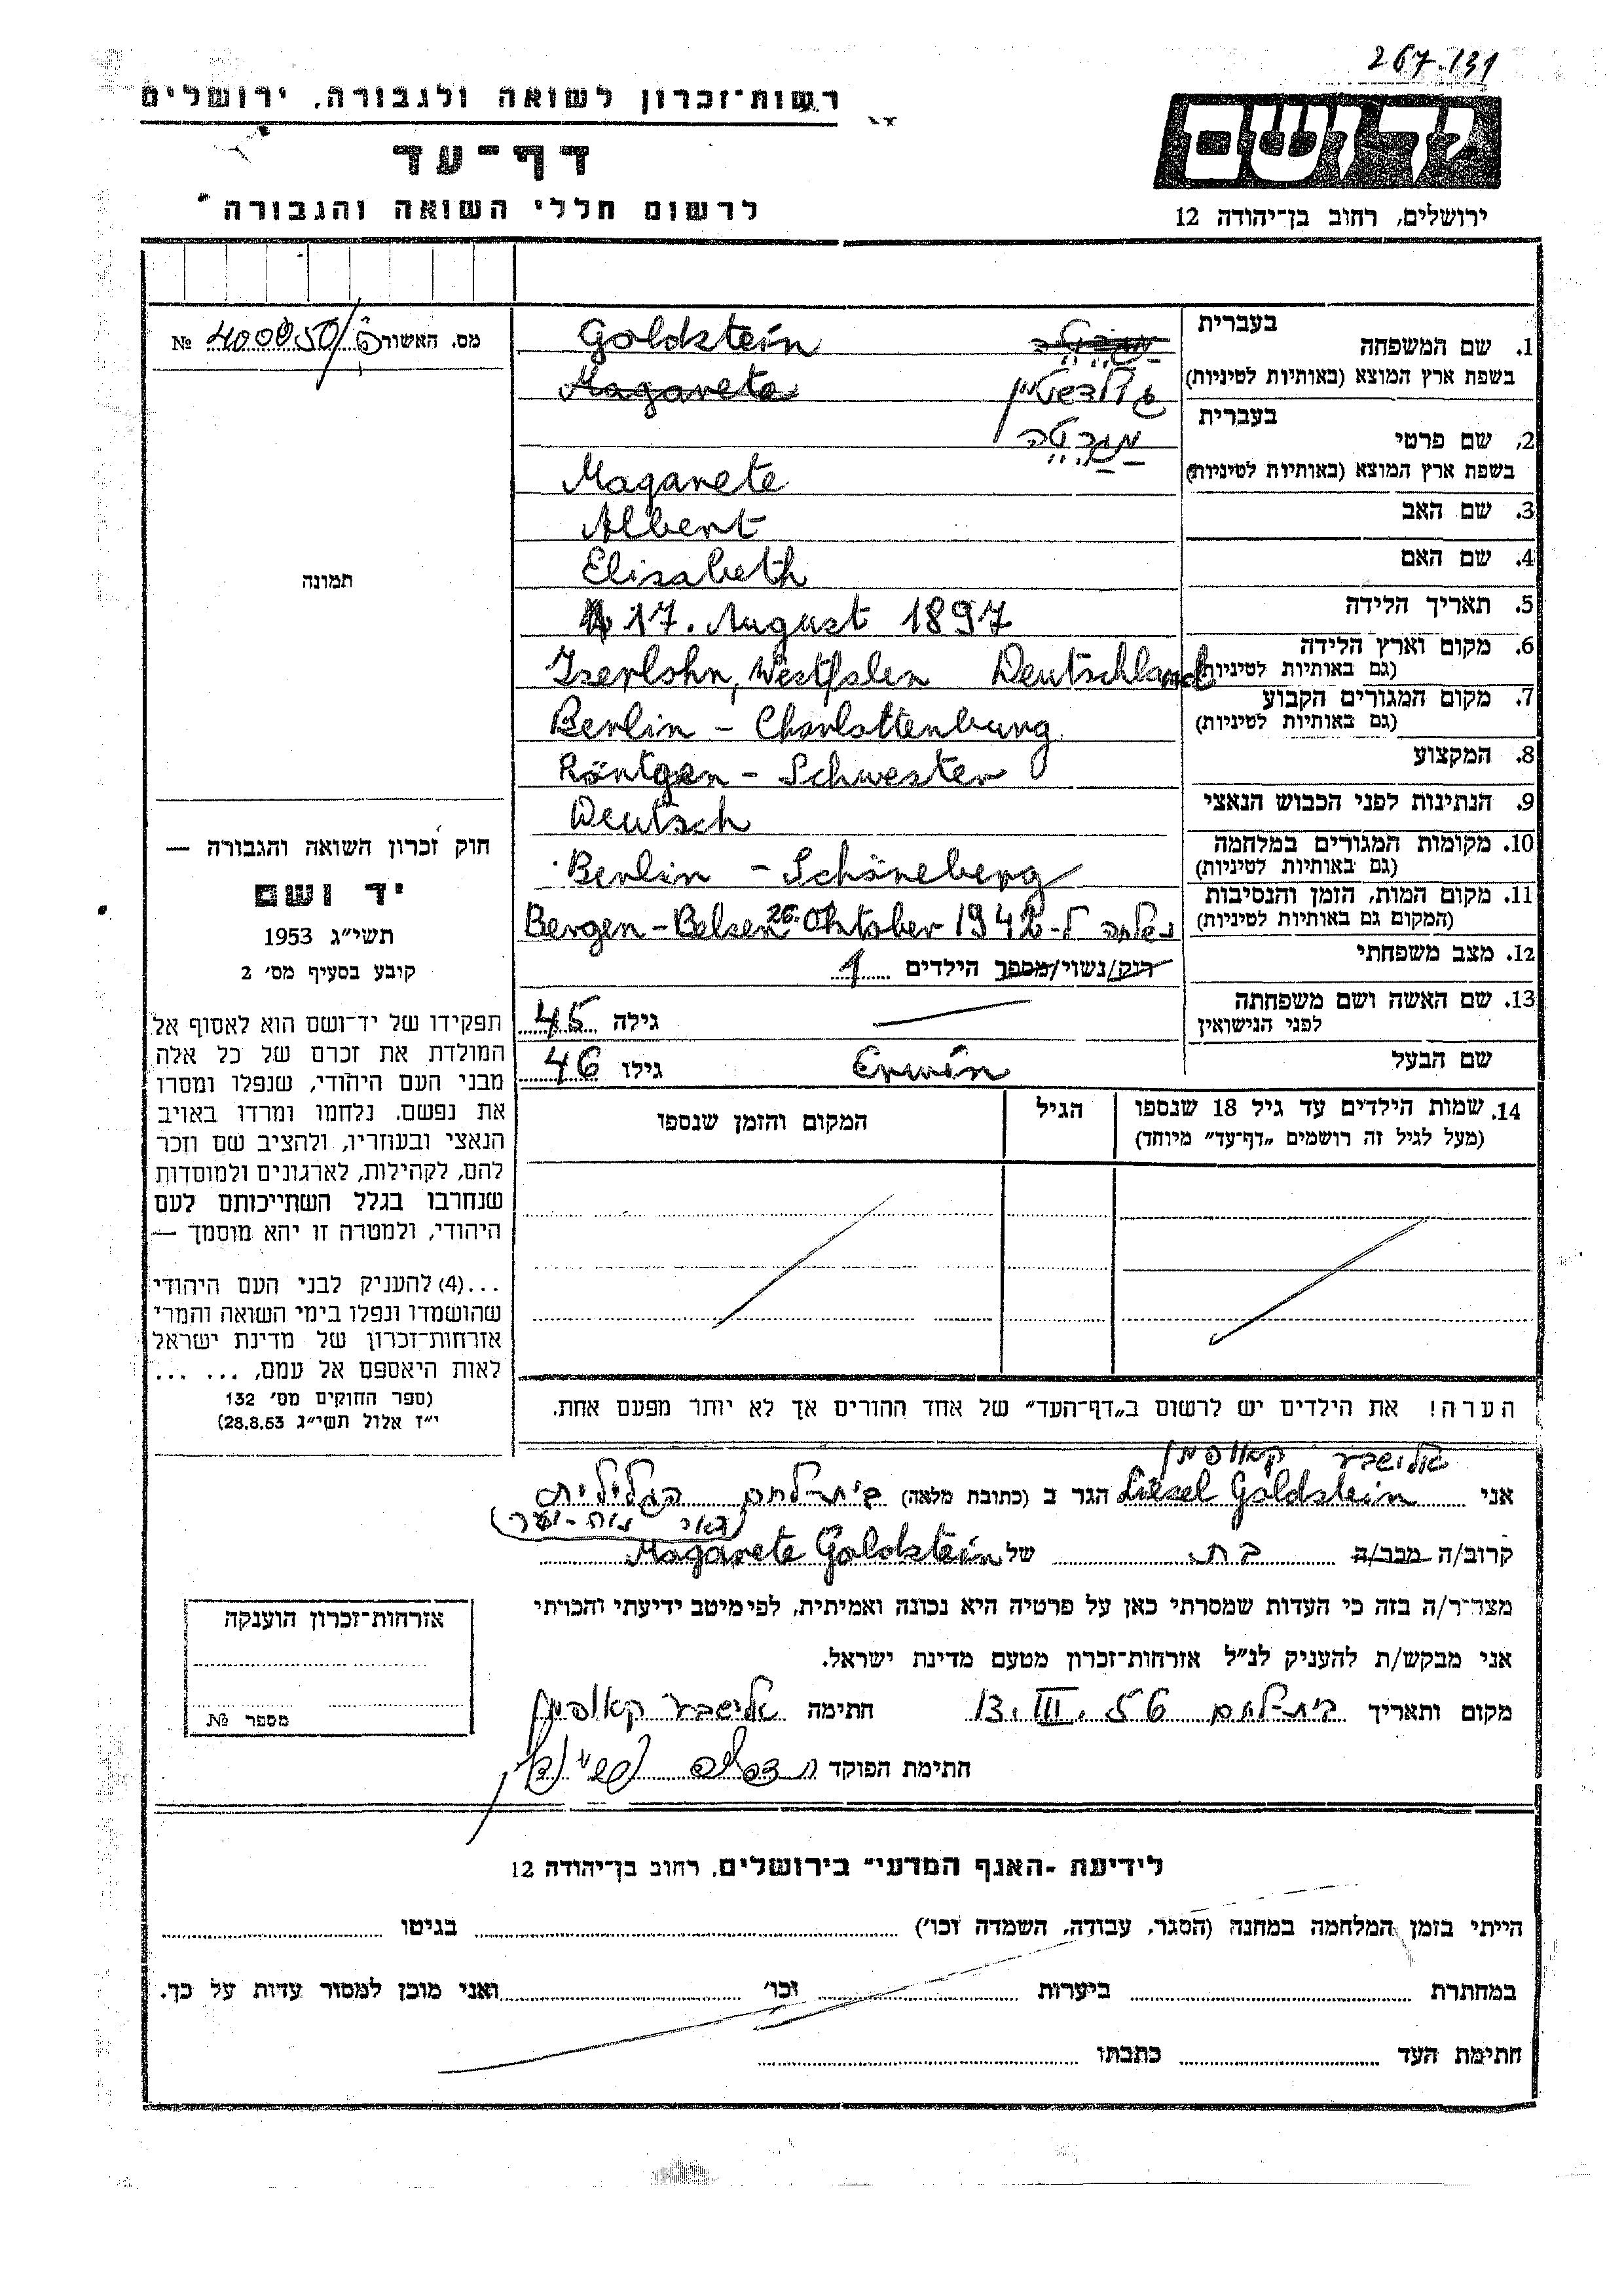 267.131
רשות־זכרון לשואה ולגבורה, ירושלים
יד ושם
דף־עד
לרשום חללי השואה והגבורה
ירושלים, רחוב בן־יהודה 12
מס. האשורה
№ 400050/
בעברית
1. שם המשפחה
Goldstein
בשפת ארץ המוצא (באותיות לטיניות)
Magarete
גולדשטיין
בעברית
2. שם פרטי
מגרטה
בשפת ארץ המוצא (באותיות לטיניות)
Magarete
3. שם האב
Albert
4. שם האם
Elisabeth
5. תאריך הלידה
17. August 1897
6. מקום וארץ הלידה
(גם באותיות לטיניות)
Iserlohn, Westfalen Deutschland
7. מקום המגורים הקבוע
(גם באותיות לטיניות)
Berlin - Charlottenburg
8. המקצוע
Röntgen - Schwester
9. הנתינות לפני הכבוש הנאצי
Deutsch
10. מקומות המגורים במלחמה
(גם באותיות לטיניות)
Berlin - Schöneberg
11. מקום המות, הזמן והנסיבות
(המקום גם באותיות לטיניות)
נשלחה ל- Bergen-Belsen 26. Oktober 1942
12. מצב משפחתי
רוק/נשוי/מספר הילדים 1
13. שם האשה ושם משפחתה
לפני הנישואין
גילה 45
שם הבעל
Erwin
גילו 46
14. שמות הילדים עד גיל 18 שנספו
(מעל לגיל זה רושמים „דף־עד״ מיוחד)
הגיל
המקום והזמן שנספו
תמונה
חוק זכרון השואה והגבורה —
יד ושם
תשי״ג 1953
קובע בסעיף מס׳ 2
תפקידו של יד־ושם הוא לאסוף אל
המולדת את זכרם של כל אלה
מבני העם היהודי, שנפלו ומסרו
את נפשם, נלחמו ומרדו באויב
הנאצי ובעוזריו, ולהציב שם וזכר
להם, לקהילות, לארגונים ולמוסדות
שנחרבו בגלל השתייכותם לעם
היהודי, ולמטרה זו יהא מוסמך —
...(4) להעניק לבני העם היהודי
שהושמדו ונפלו בימי השואה והמרי
אזרחות־זכרון של מדינת ישראל
לאות היאספם אל עמם, ... ...
(ספר החוקים מס׳ 132
י״ז אלול תשי״ג 28.8.53)
הערה! את הילדים יש לרשום ב„דף־העד״ של אחד ההורים אך לא יותר מפעם אחת.
אלישבע קאופמן
אני Liesel Goldstein הגר ב (כתובת מלאה) בית-לחם הגלילית
קרוב/ה מכר/ה בת של Magarete Goldstein
מצהיר/ה בזה כי העדות שמסרתי כאן על פרטיה היא נכונה ואמיתית, לפי מיטב ידיעתי והכרתי
אני מבקש/ת להעניק לנ״ל אזרחות־זכרון מטעם מדינת ישראל.
מקום ותאריך בית-לחם 13. III. 56 חתימה אלישבע קאופמן
חתימת הפוקד
אזרחות־זכרון הוענקה
מספר №
לידיעת ״האגף המדעי״ בירושלים, רחוב בן־יהודה 12
הייתי בזמן המלחמה במחנה (הסגר, עבודה, השמדה וכו׳) בגיטו
במחתרת ביערות וכו׳ ואני מוכן למסור עדות על כך.
חתימת העד כתבתו